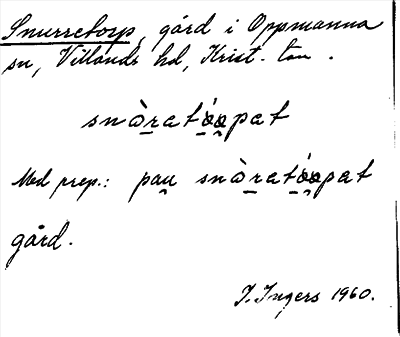 Snurretorp, gård i Oppmanna
sn, Villands hd, Krist. län.
snàr̲atóo̯pat
Med prep.: pau̯ snàr̲atóo̯pat
gård.
I. Ingers 1960.